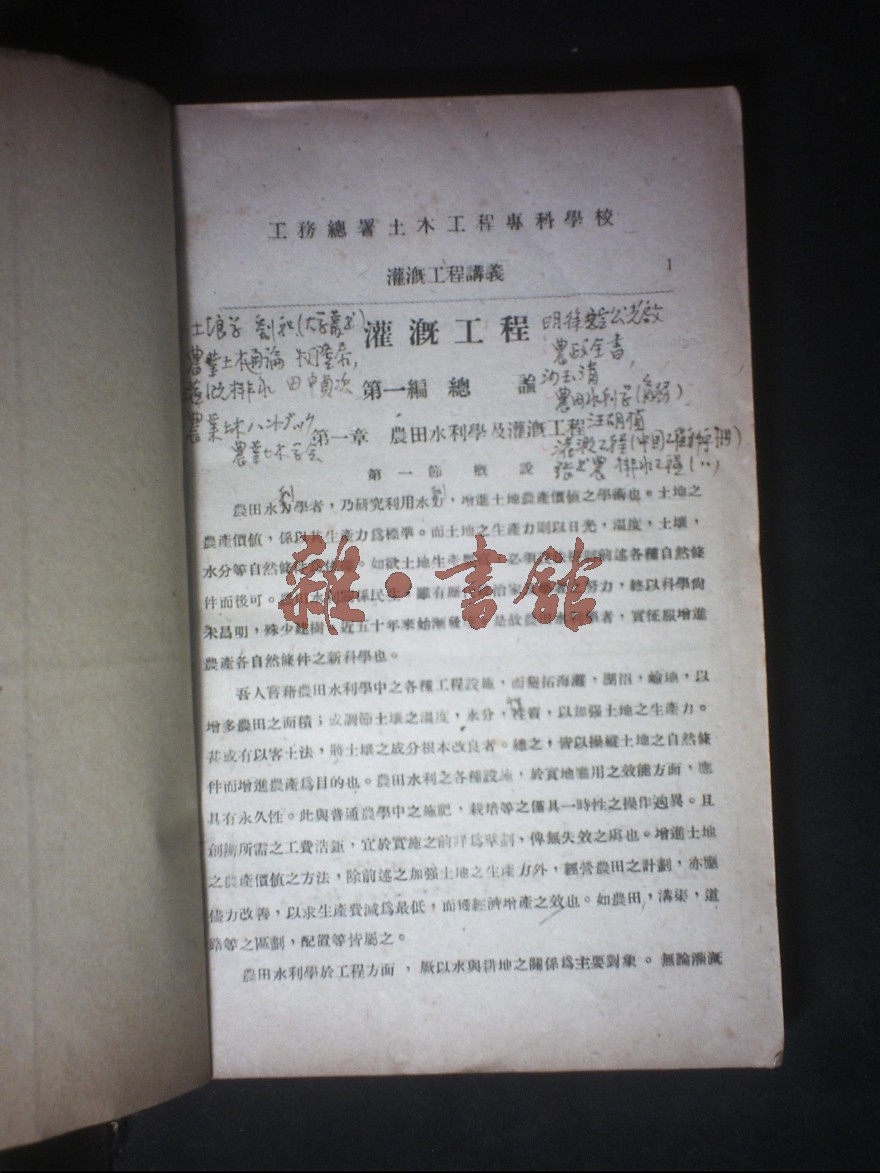 工務總署土木工程專科學校
灌漑工程講義
1
灌漑工程
土壤学 劉和(大学叢书)
農業土木通論
灌漑排水 田中貞次
農業土木ハンドブック
農業土木学会
明徐 公光啟
農政全書
沙玉清
農田水利学
汪胡楨
灌漑工程(中国工程師手册)
張 農 排水工程(〃)
第一編 總論
第一章 農田水利學及灌漑工程
第一節 概說
利 利
農田水 學者,乃研究利用水 ,增進土地農產價值之學術也。土地之
農產價値,係以其生產力爲標準。而土地之生產力則以日光,溫度,土壤,
水分等自然條件 。如欲土地生產 必 前述各種自然條
件而後可。農田水利關係民生,雖有歷 治家 努力,終以科學尙
未昌明,殊少建樹。近五十年來始漸發 是故農田水利學者,實征服增進
農產各自然條件之新科學也。
吾人嘗藉農田水利學中之各種工程設施,而墾拓海灘,湖沼, 地,以
增多農田之面積;或調節土壤之溫度,水分,性質,以加强土地之生產力。
甚或有以客土法,將土壤之成分根本改良者。總之,皆以操縱土地之自然條
件而增進農產爲目的也。農田水利之各種設施,於實地應用之效能方面,應
具有永久性。此與普通農學中之施肥,栽培等之僅具一時性之操作迥異。且
創辦所需之工費浩鉅,宜於實施之前詳爲擘劃,俾無失效之虞也。增進土地
之農產價值之方法,除前述之加强土地之生產力外,經營農田之計劃,亦應
儘力改善,以求生產費減爲最低,而獲經濟增產之效也。如農田,溝渠,道
路等之區劃,配置等皆屬之。
農田水利學於工程方面,厥以水與耕地之關係爲主要對象。無論灌漑
雜·書館